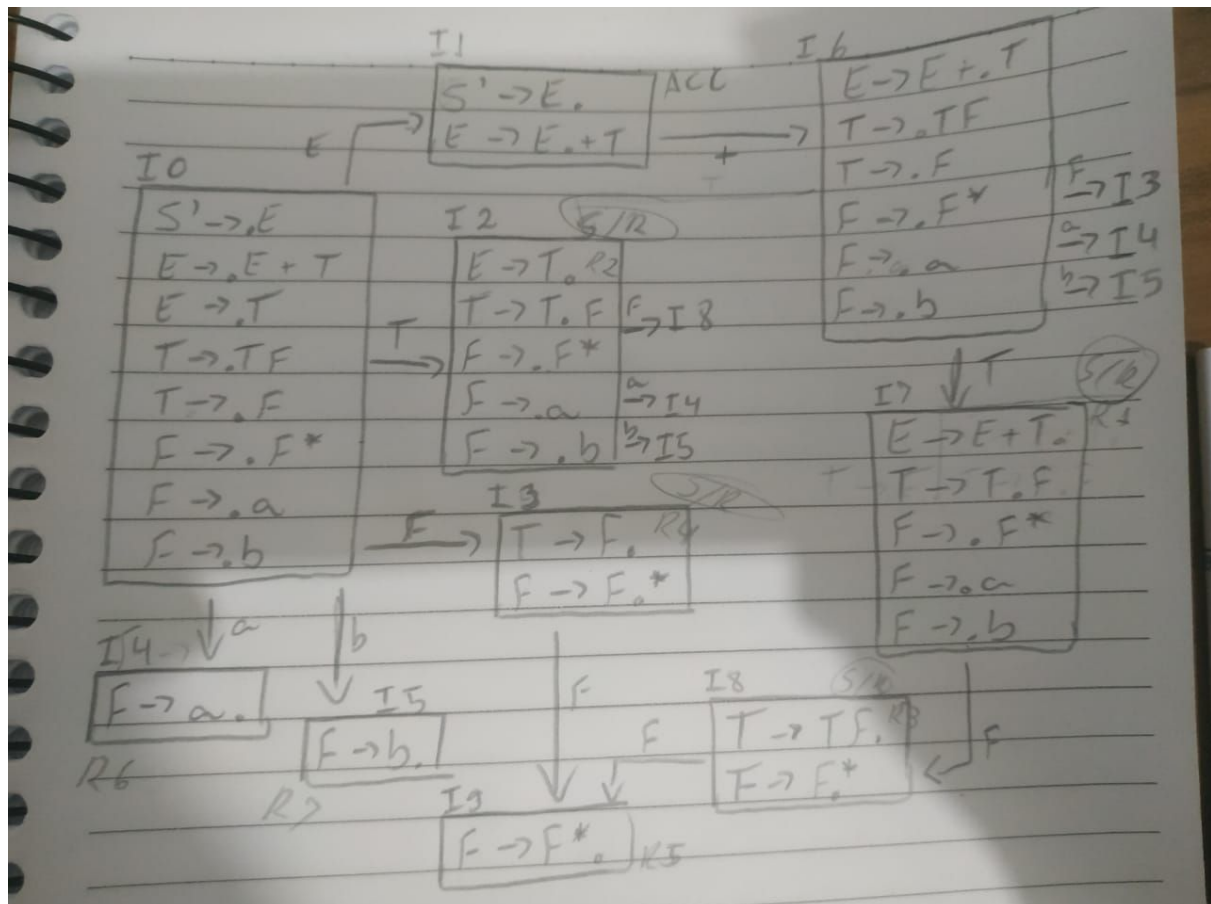 I1
S' -> E.
E -> E. + T
ACC
+
E
I6
E -> E + . T
T -> . TF
T -> . F
F -> . F*
F -> . a
F -> . b
F -> I3
a -> I4
b -> I5
I0
S' -> .E
E -> .E + T
E -> .T
T -> .TF
T -> .F
F -> .F*
F -> .a
F -> .b
T
I2
S/R
E -> T. R2
T -> T. F
F -> .F*
F -> .a
F -> .b
F -> I8
a -> I4
b -> I5
T
I7
S/R
E -> E + T. R1
T -> T. F
F -> . F*
F -> . a
F -> . b
F
I3
S/R
T -> F. R4
F -> F. *
F
a
I4 ->
F -> a.
R6
b
I5
F -> b.
R7
I8
S/R
T -> TF. R3
F -> F. *
F
F
I9
F -> F*. R5